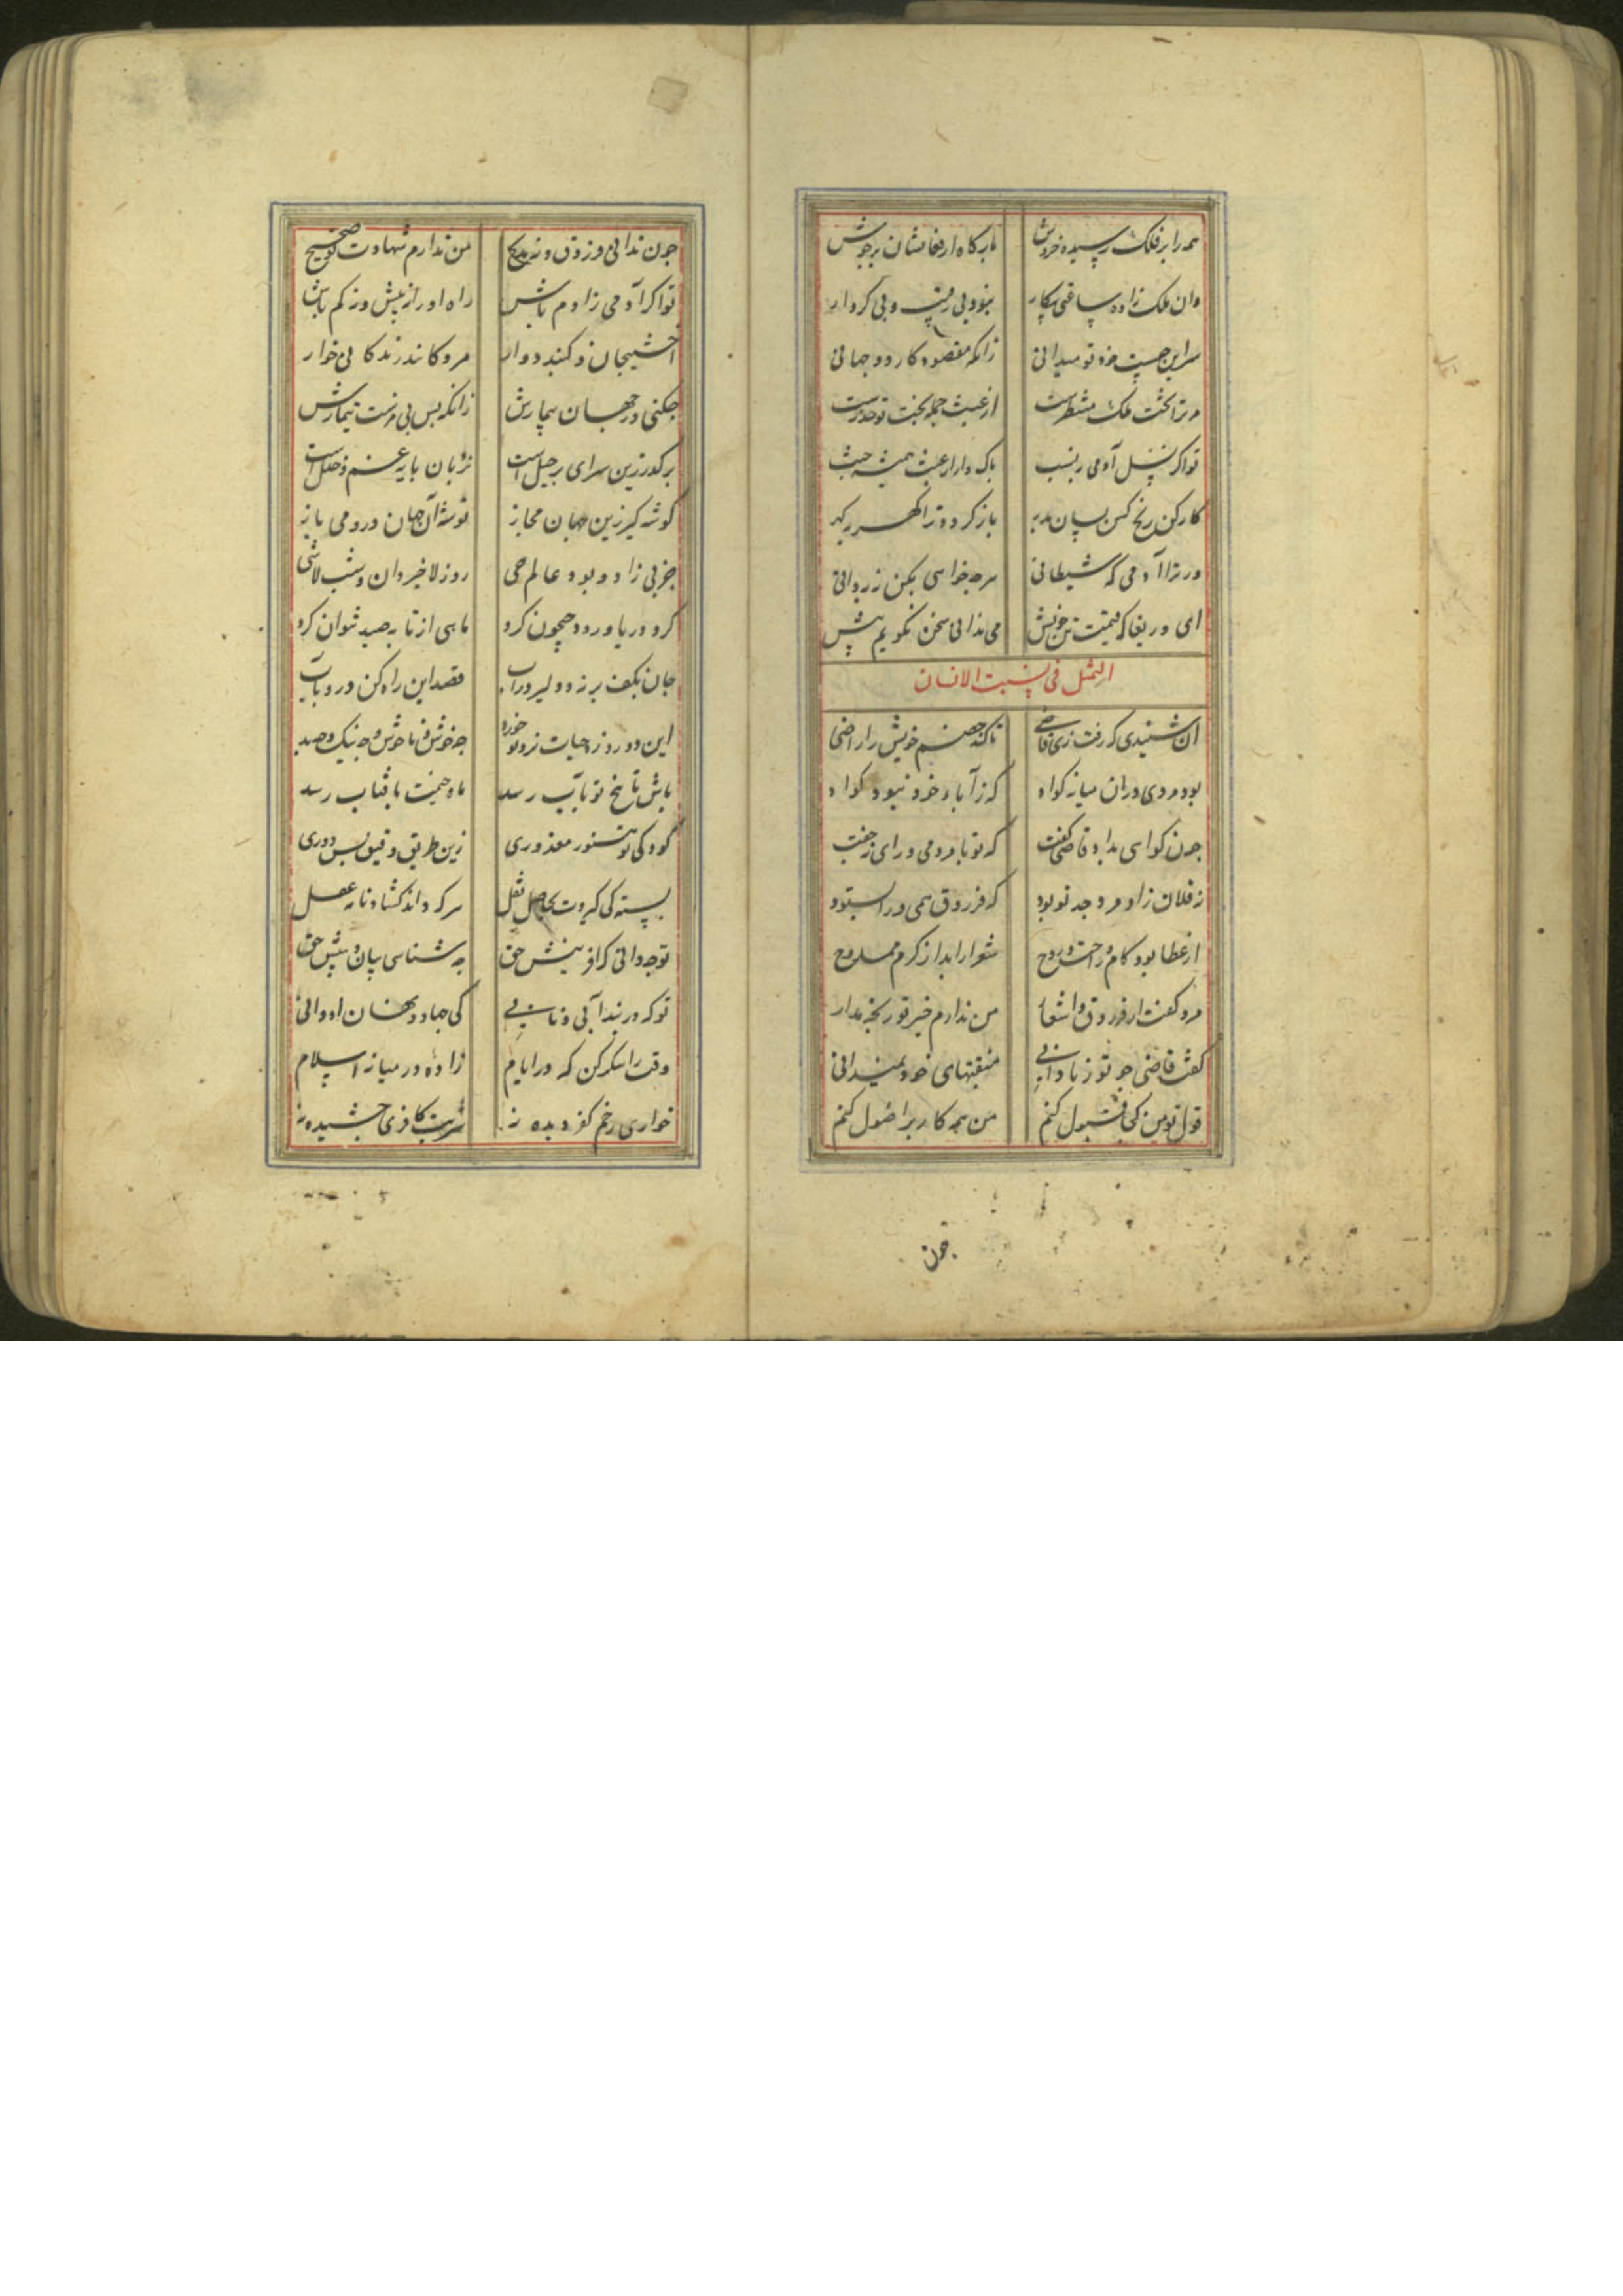 همه را بر فلک رسیده خروش بارکاه از فغانشان بر جوش
وان ملک زاده ساقی بیکار نبود بی و بی کردار
سر این چیست خود تو میدانی زانکه مقصود کار دو جهانی
مر ترا تخت ملک منتظرست از عبث جمله بخت تو حذرست
تو اکر نسل آدمی بنسب باک دار از عبث همیشه حسب
کار کن رنج کش بسان باز کرد و ترا
ور نه آدمی که شیطانی هر چه خواهی بکن ز نادانی
ای دریغا که قیمت تن خویش می ندانی سخن نکویم بیش
التمثل فی نسبت الانسان
آن شنیدی که رفت زی قاضی تا کند خصم خویش را راضی
بود مردی دران میانه کواه که ز آباء خود نبود کواه
چون کواهی بداد قاضی کفت که تو با مردمی و رای جفت
نه فلان زاد مرد جد تو بود که فرزدق همی ورا بستود
از عطا بود کام و راحت روح شعرا را بد از کرم ممدوح
مرد کفت از فرزدق و اشعار من ندارم خبر تو رنجه مدار
کفت قاضی چو تو ز نادانی منقبتهای خود نمیدانی
قول تو من کجا قبول کنم من همه کار بر اصول کنم
چون
چون ندانی فرزدق و نه مدیح من ندارم شهادت تو صحیح
تو اکر آدمی ز آدم باش راه او را ز بیش وز کم باش
اخشیجان و کنبد دوار مردکانند زندکانی خوار
چکنی در جهان بیمارش زانکه بس بی مزست تیمارش
بر کذر زین سرای برحیل است نردبان پایه غم و خلل است
کوشه کیر زین جهان مجاز توشه آن جهان درو می ساز
جز بی زاد و بود عالم حی روز لا خیر دان و شب لاشی
کرد دریا و رود جیحون کرد ماهی از تابه صید نتوان کرد
جان بکف بر نه و دلیر در آب قصد این راه کن در و بشتاب
این دو روزه حیات نزد خرد چه خوش و ناخوش و چه نیک و چه بد
باش تا یخ تو بآب رسد ماه خیمت بآفتاب رسد
کودکی تو هنوز معذوری زین طریق دقیق بس دوری
سرکه داند کشاد نامه عقل
تو چه دانی که آفرینش حق به شناسی بیان و بینش حق
تو که در بند آبی و نانی کی جهاد نهان او دانی
وقت را شکر کن که در ایام زاده در میانه اسلام
خواری زخم کفر دیده نه شربت کافری چشیده نه